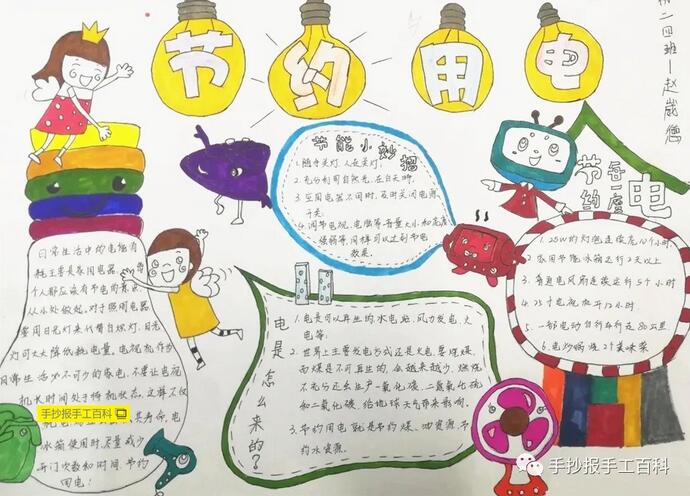 节约用电
二四班
节能小妙招
1.随手关灯,人走关灯.
2.充分利用自然光,在白天时.
3.家用电器不用时,及时关闭电源
开关.
4.调节电视、电脑等音量大小和亮度
强弱等,同样可以达到节电
效果.
节约每一度电
1. 25W的灯泡连续亮
2. 家用
3. 普通电风扇连续运行5个小时
4. 25寸电视机开12小时.
5. 一部电动自行车行走80公里
6. 电炒锅烧2个美味菜
电是怎么来的?
1.电是可以再生的,水电站,风力发电,火
电等.
2.世界上主要发电方式还是火电,要烧煤,
而煤是不可再生的,会越来越少,燃烧
不充分还会生产一氧化碳、二氧化硫
和二氧化碳,给地球天气带来影响.
3.节约用电就是节约煤、油资源,节
约水资源.
日常生活中的电能消
耗主要是家用电器.
个人都应该有节电的意识,
从小处做起.对于照明电器
要用日光灯来代替白炽灯,日光
灯可大大降低耗电量.电视机作为
日常生活必不可少的家电,不要让电视
机长时间处于待机状态,这样不仅
其寿命.电
冰箱使用时尽量减少
开门次数和时间.节约
用电!
手抄报手工百科
手抄报手工百科